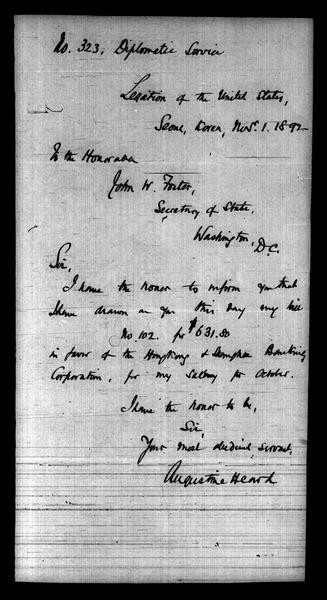 No. 323, Diplomatic Service
Legation of the United States,
Seoul, Korea, Nov. 1. 1892
To the Honorable
John W. Foster,
Secretary of State,
Washington, D.C.
Sir,
I have the honor to inform you that
I have drawn on you this day my bill
No. 102. for $631.80
in favor of the Hongkong & Shanghae Banking
Corporation, for my salary for October.
I have the honor to be,
Sir,
Your most obedient servant,
Augustine Heard